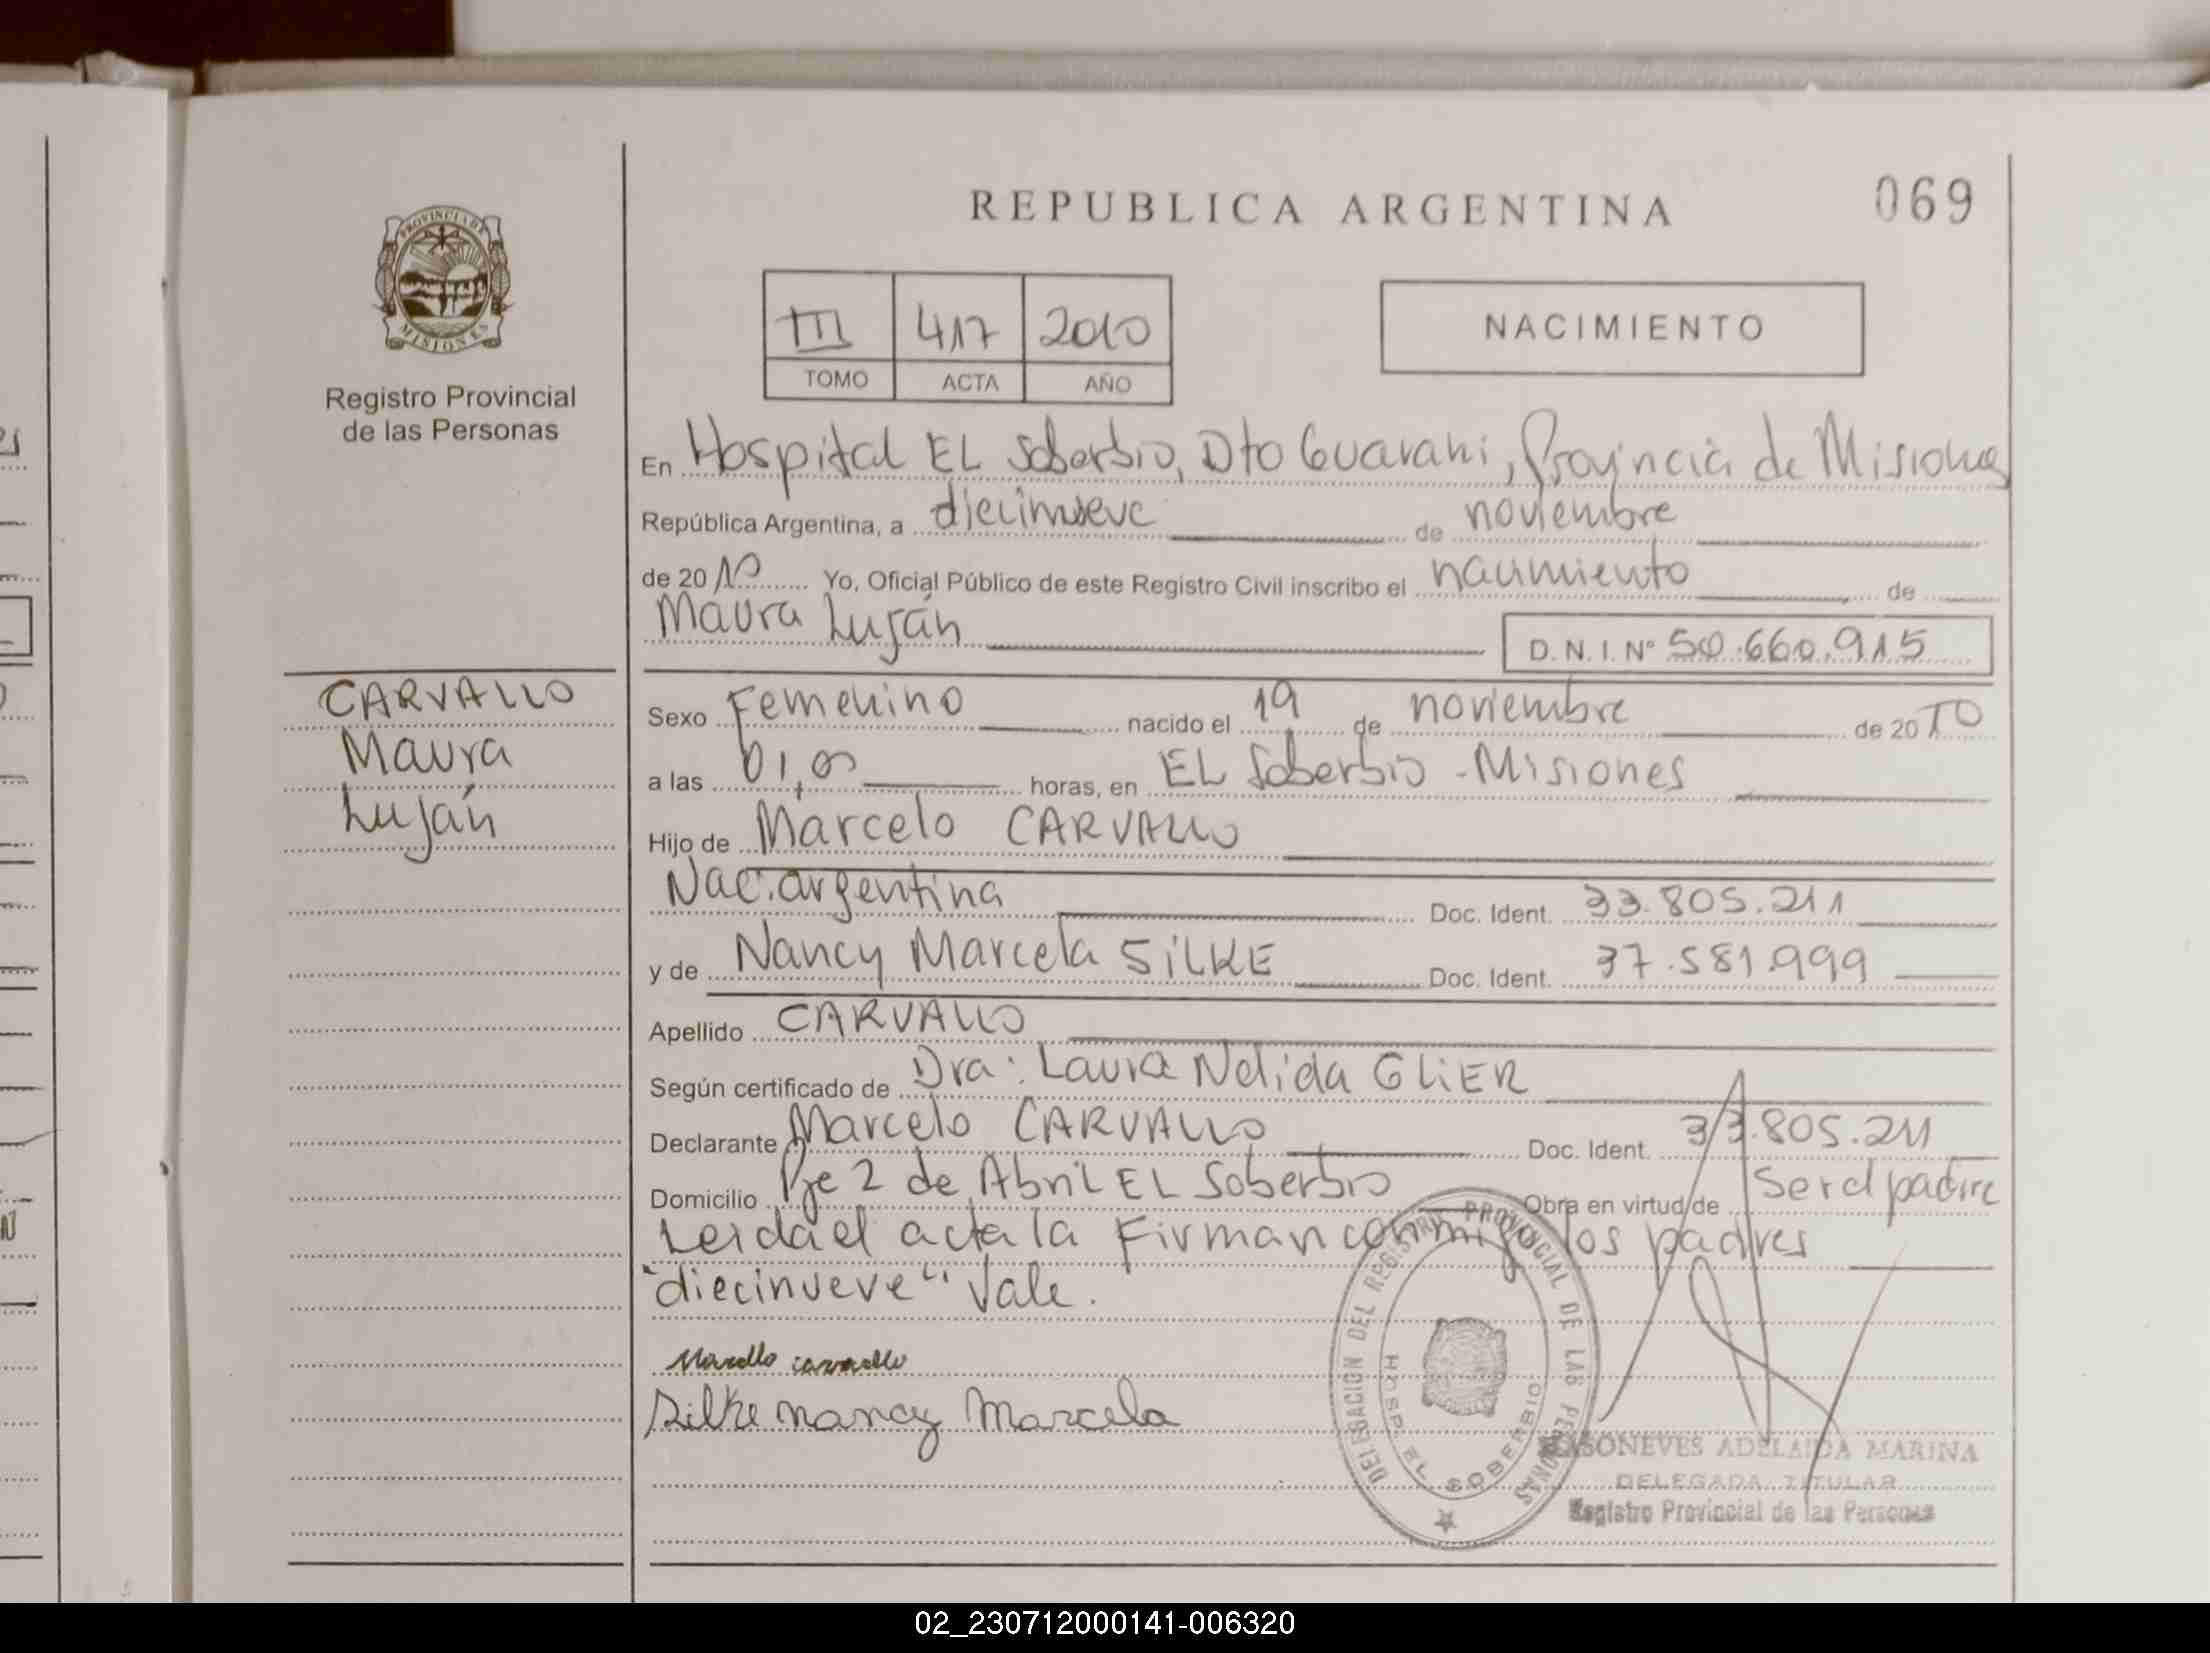 REPUBLICA ARGENTINA
069
PROVINCIA DE
MISIONES
Registro Provincial
de las Personas
III 417 2010
TOMO ACTA AÑO
NACIMIENTO
En Hospital EL Soberbio, Dto Guarani, Provincia de Misiones
República Argentina, a diecinueve de noviembre
de 2010 Yo, Oficial Público de este Registro Civil inscribo el nacimiento de
Maura Luján
D.N.I. Nº 50.660.915
CARVALLO
Maura
Luján
Sexo Femenino nacido el 19 de noviembre de 2010
a las 01,00 horas, en EL Soberbio - Misiones
Hijo de Marcelo CARVALLO
Nac. argentina Doc. Ident. 33.805.211
y de Nancy Marcela SILKE Doc. Ident. 37.581.999
Apellido CARVALLO
Según certificado de Dra: Laura Nelida GLIER
Declarante Marcelo CARVALLO Doc. Ident. 33.805.211
Domicilio Bje 2 de Abril EL Soberbio Obra en virtud de Ser el padre
Leida el acta la Firman conmigo los padres
"diecinueve" Vale.
Marcelo Carvallo
Silke nancy Marcela
DELEGACION DEL REGISTRO PROVINCIAL DE LAS PERSONAS
HOSP. EL SOBERBIO
ADELAIDA MARINA
DELEGADA TITULAR
Registro Provincial de las Personas
02_230712000141-006320